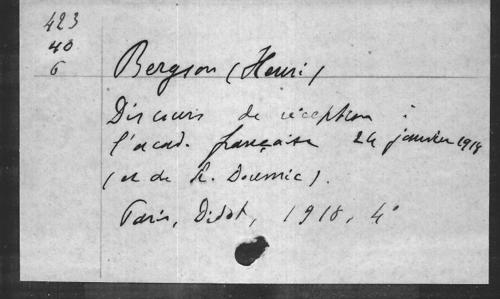 423
40
6
Bergson (Henri)
Discours de réception à
l'acad. française 24 janvier 1918
(et de R. Doumic).
Paris, Didot, 1918, 4°